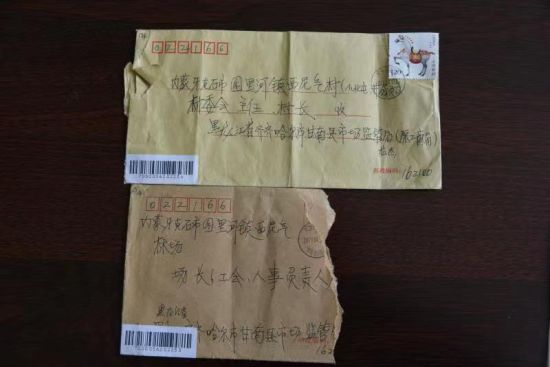 022166
内蒙牙克石市图里河镇西尼气村
村委会 主任 村长 收
黑龙江省齐齐哈尔市甘南县市场监管局
邮政编码 162100
022166
内蒙牙克石市图里河镇西尼气
林场
场长、工会、人事负责人
黑龙江省
齐哈尔市甘南县市场监管
162